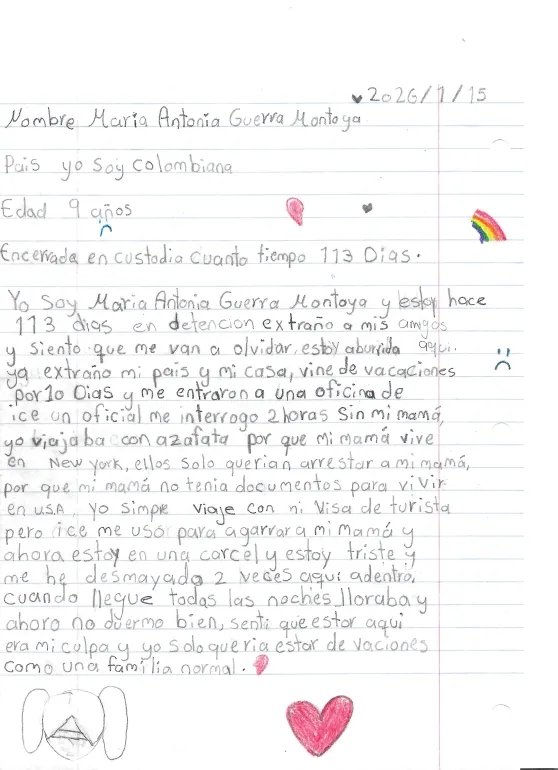 2026/1/15
Nombre Maria Antonia Guerra Montoya
Pais yo soy colombiana
Edad 9 años
Encerrada en custodia cuanto tiempo 113 Dias.
Yo soy Maria Antonia Guerra Montoya y estoy hace
113 dias en detencion extraño a mis amigos
y siento que me van a olvidar, estoy aburrida aqui.
ya extraño mi pais y mi casa, vine de vacaciones
por 10 Dias y me entraron a una oficina de
ice un oficial me interrogo 2 horas sin mi mamá,
yo viajaba con azafata por que mi mamá vive
en New york, ellos solo querian arrestar a mi mamá,
por que mi mamá no tenia documentos para vivir
en USA. Yo simpre viaje con mi Visa de turista
pero ice me usó para agarrar a mi mamá y
ahora estoy en una carcel y estoy triste y
me he desmayado 2 veces aqui adentro,
cuando llegue todas las noches lloraba y
ahoro no duermo bien, senti que estar aqui
era mi culpa y yo solo queria estar de vaciones
como una familia normal.